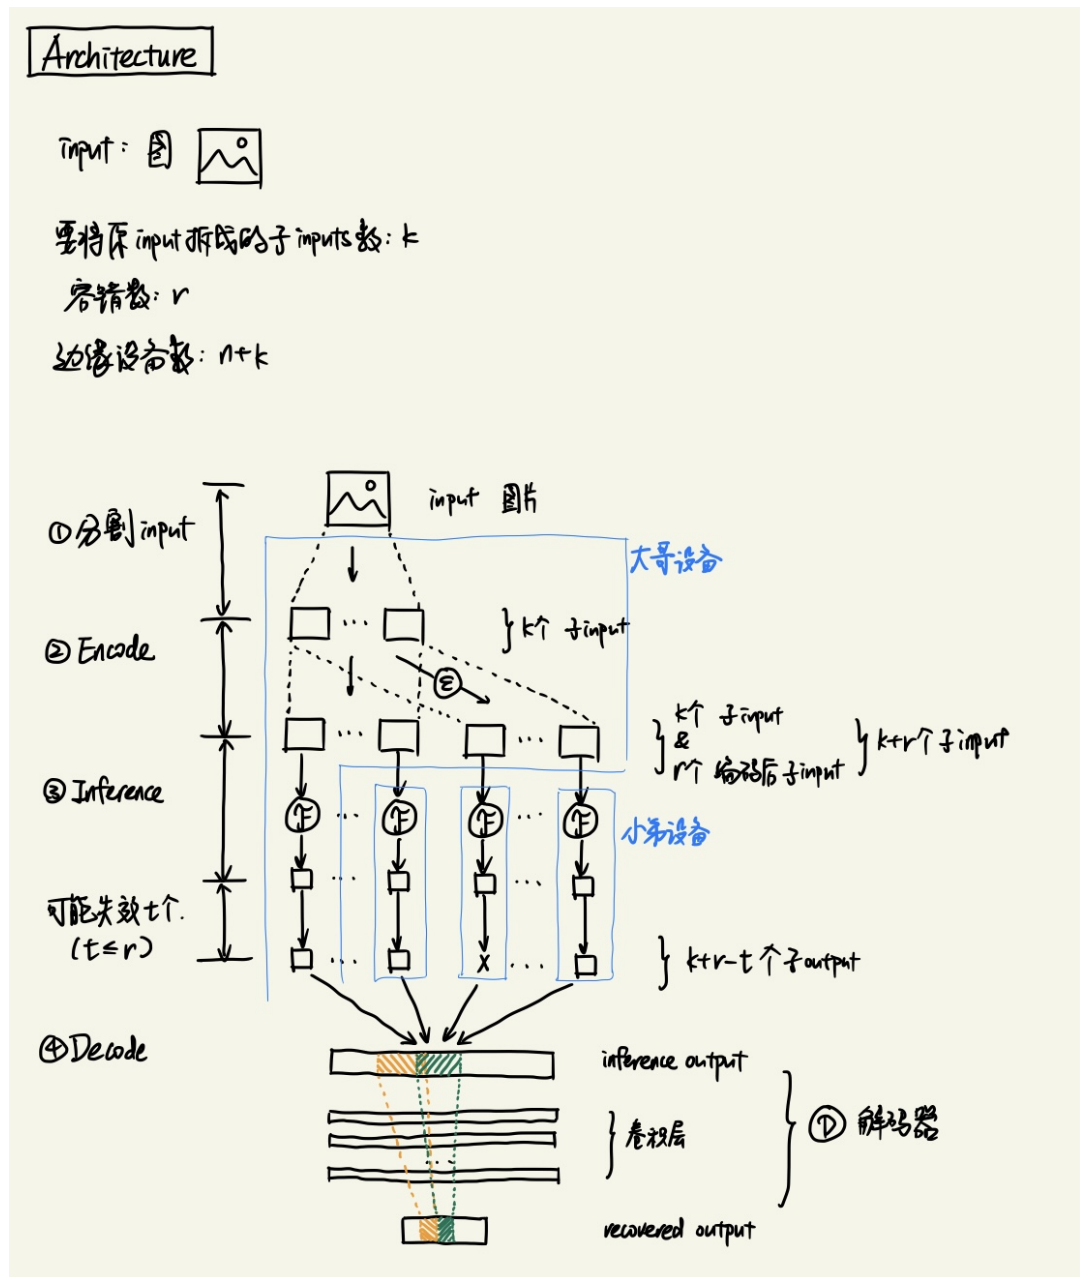 Architecture
input: 图
要将原input拆成的子inputs数: k
容错数: r
边缘设备数: n+k
input 图片
①分割input
大哥设备
}k个 子input
②Encode
ε
k个 子input
&
r个 编码后子input
}k+r个子input
③Inference
F ... F F ... F
小弟设备
可能失效t个.
(t≤r)
x
}k+r-t个子output
④Decode
inference output
}卷积层
D 解码器
recovered output